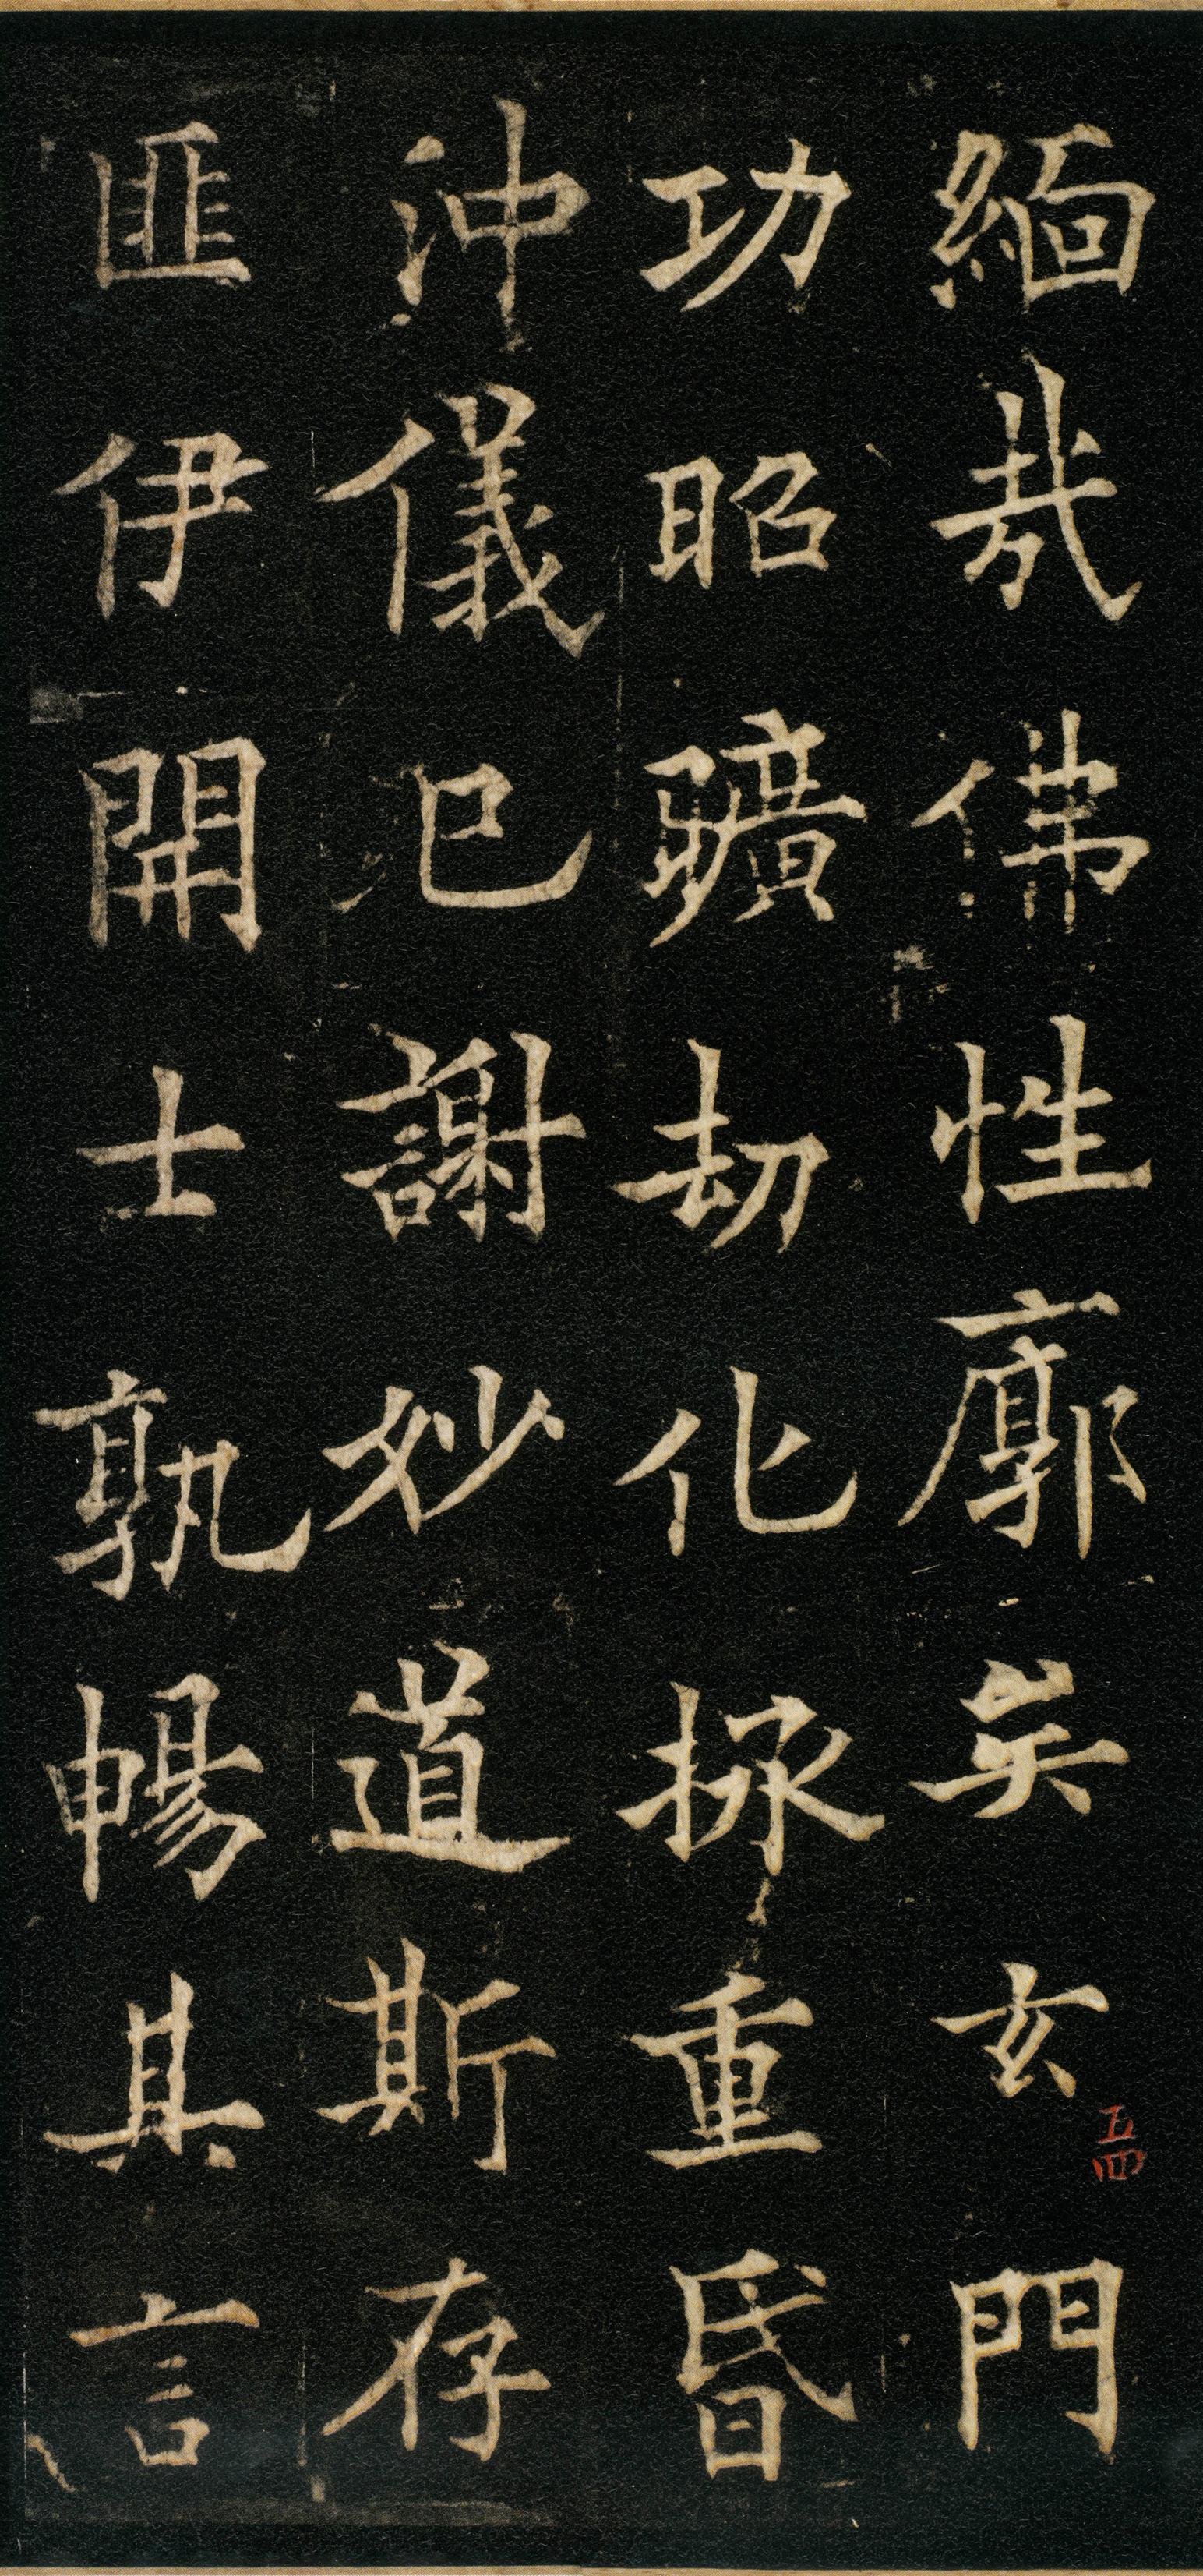 緬哉佛性廓矣玄門
功昭曠劫化拯重昏
沖儀已謝妙道斯存
匪伊開士孰暢其言
五四